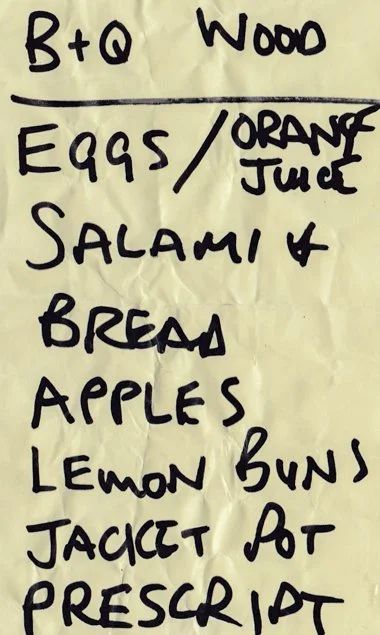 B+Q WOOD
EGGS / ORANGE JUICE
SALAMI &
BREAD
APPLES
LEMON BUNS
JACKET POT
PRESCRIPT